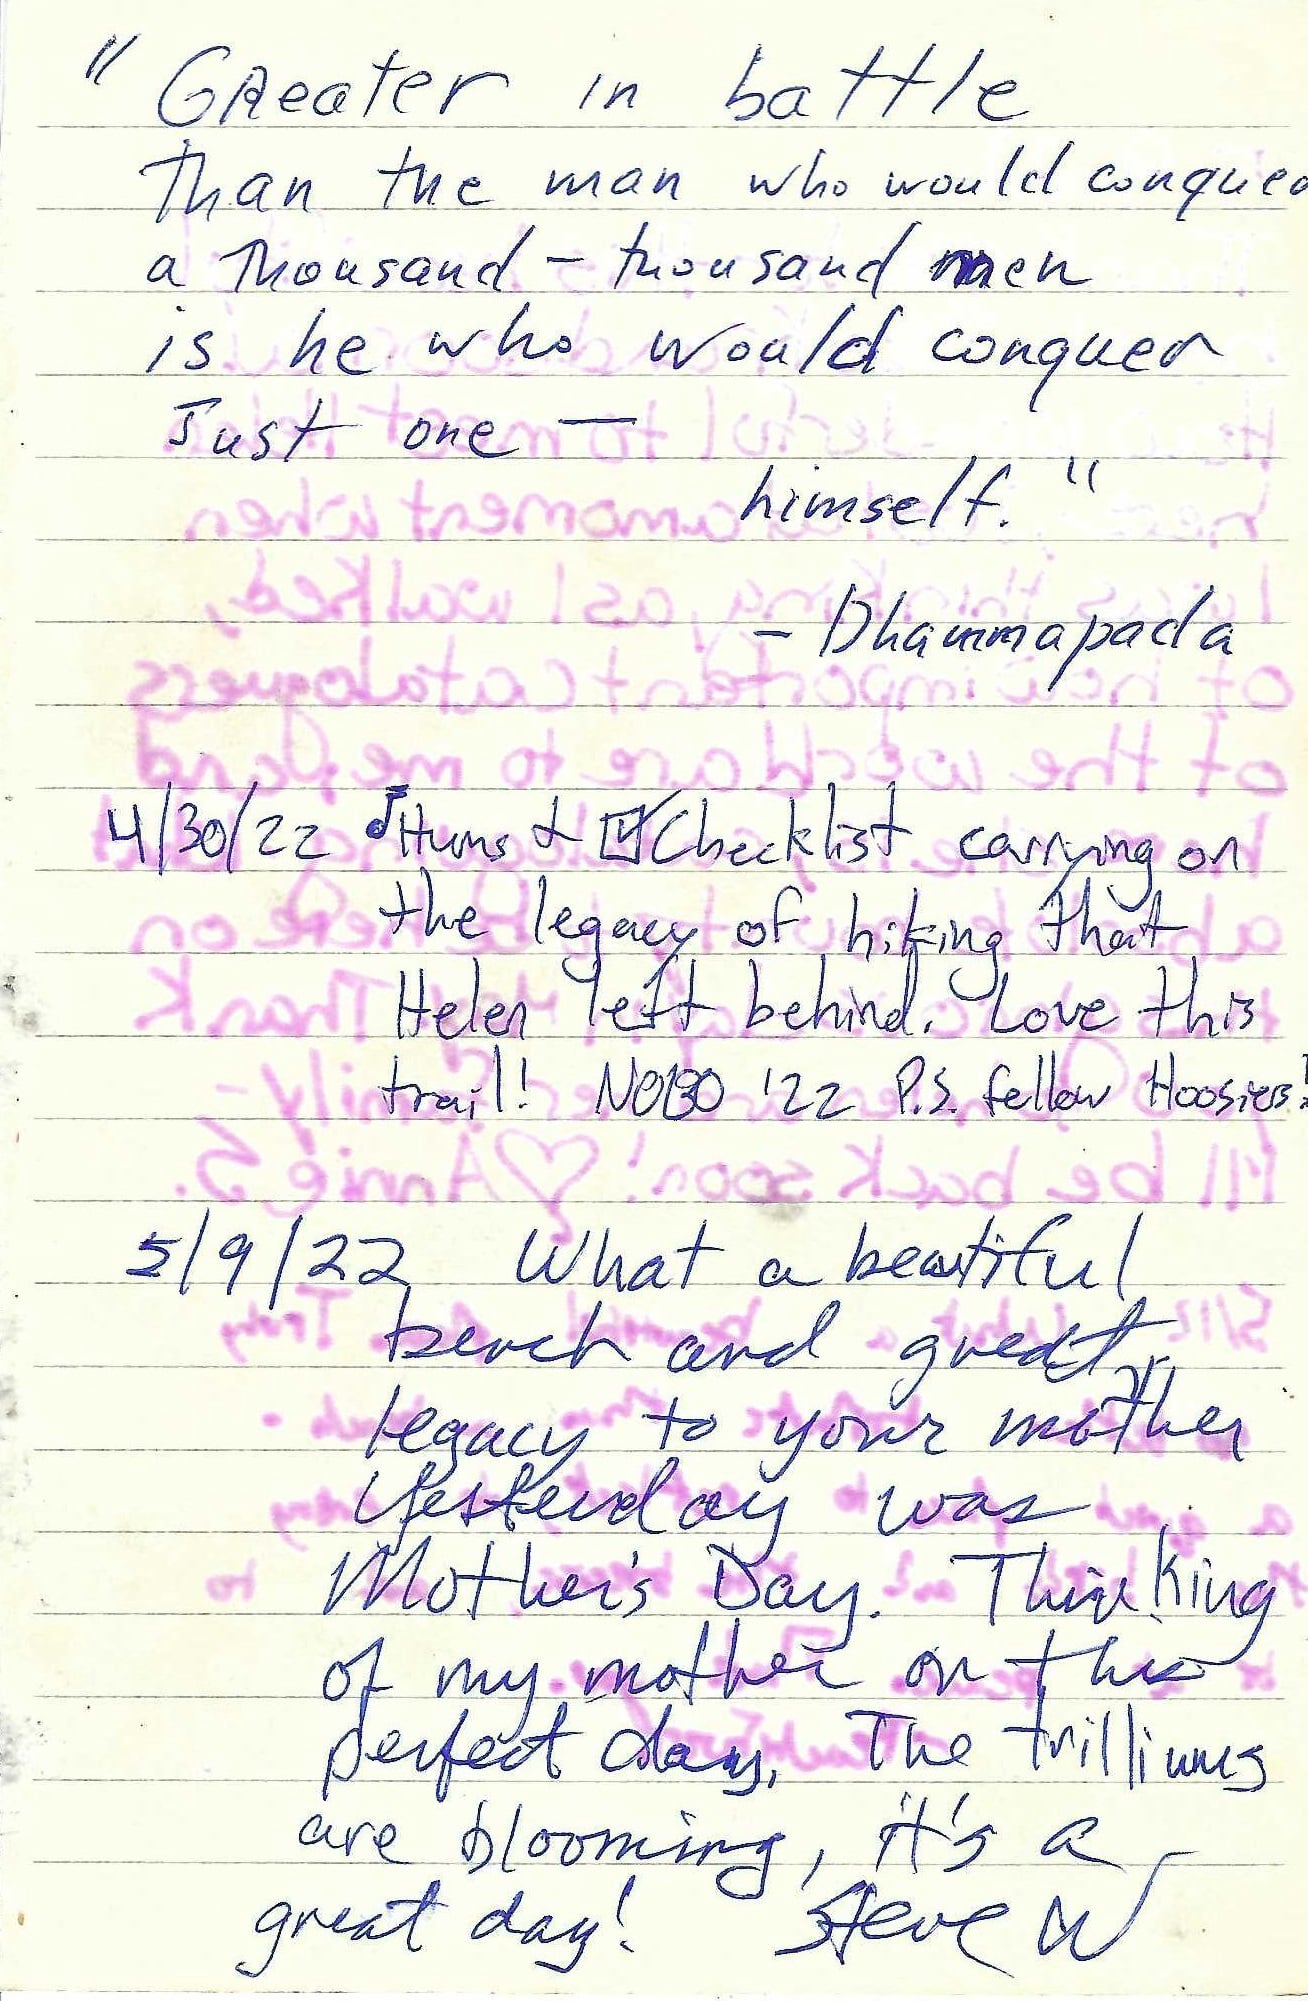 " Greater in battle
than the man who would conquer
a thousand - thousand men
is he who would conquer
Just one —
himself. "
- Dhammapada
4/30/22 ♪Hums & ☑Checklist carrying on
the legacy of hiking that
Helen left behind. Love this
trail! NOBO '22 P.S. fellow Hoosiers!
5/9/22 What a beautiful
bench and great
legacy to your mother
Yesterday was
Mother's Day. Thinking
of my mother on this
perfect day. The trilliums
are blooming, it's a
great day! Steve W